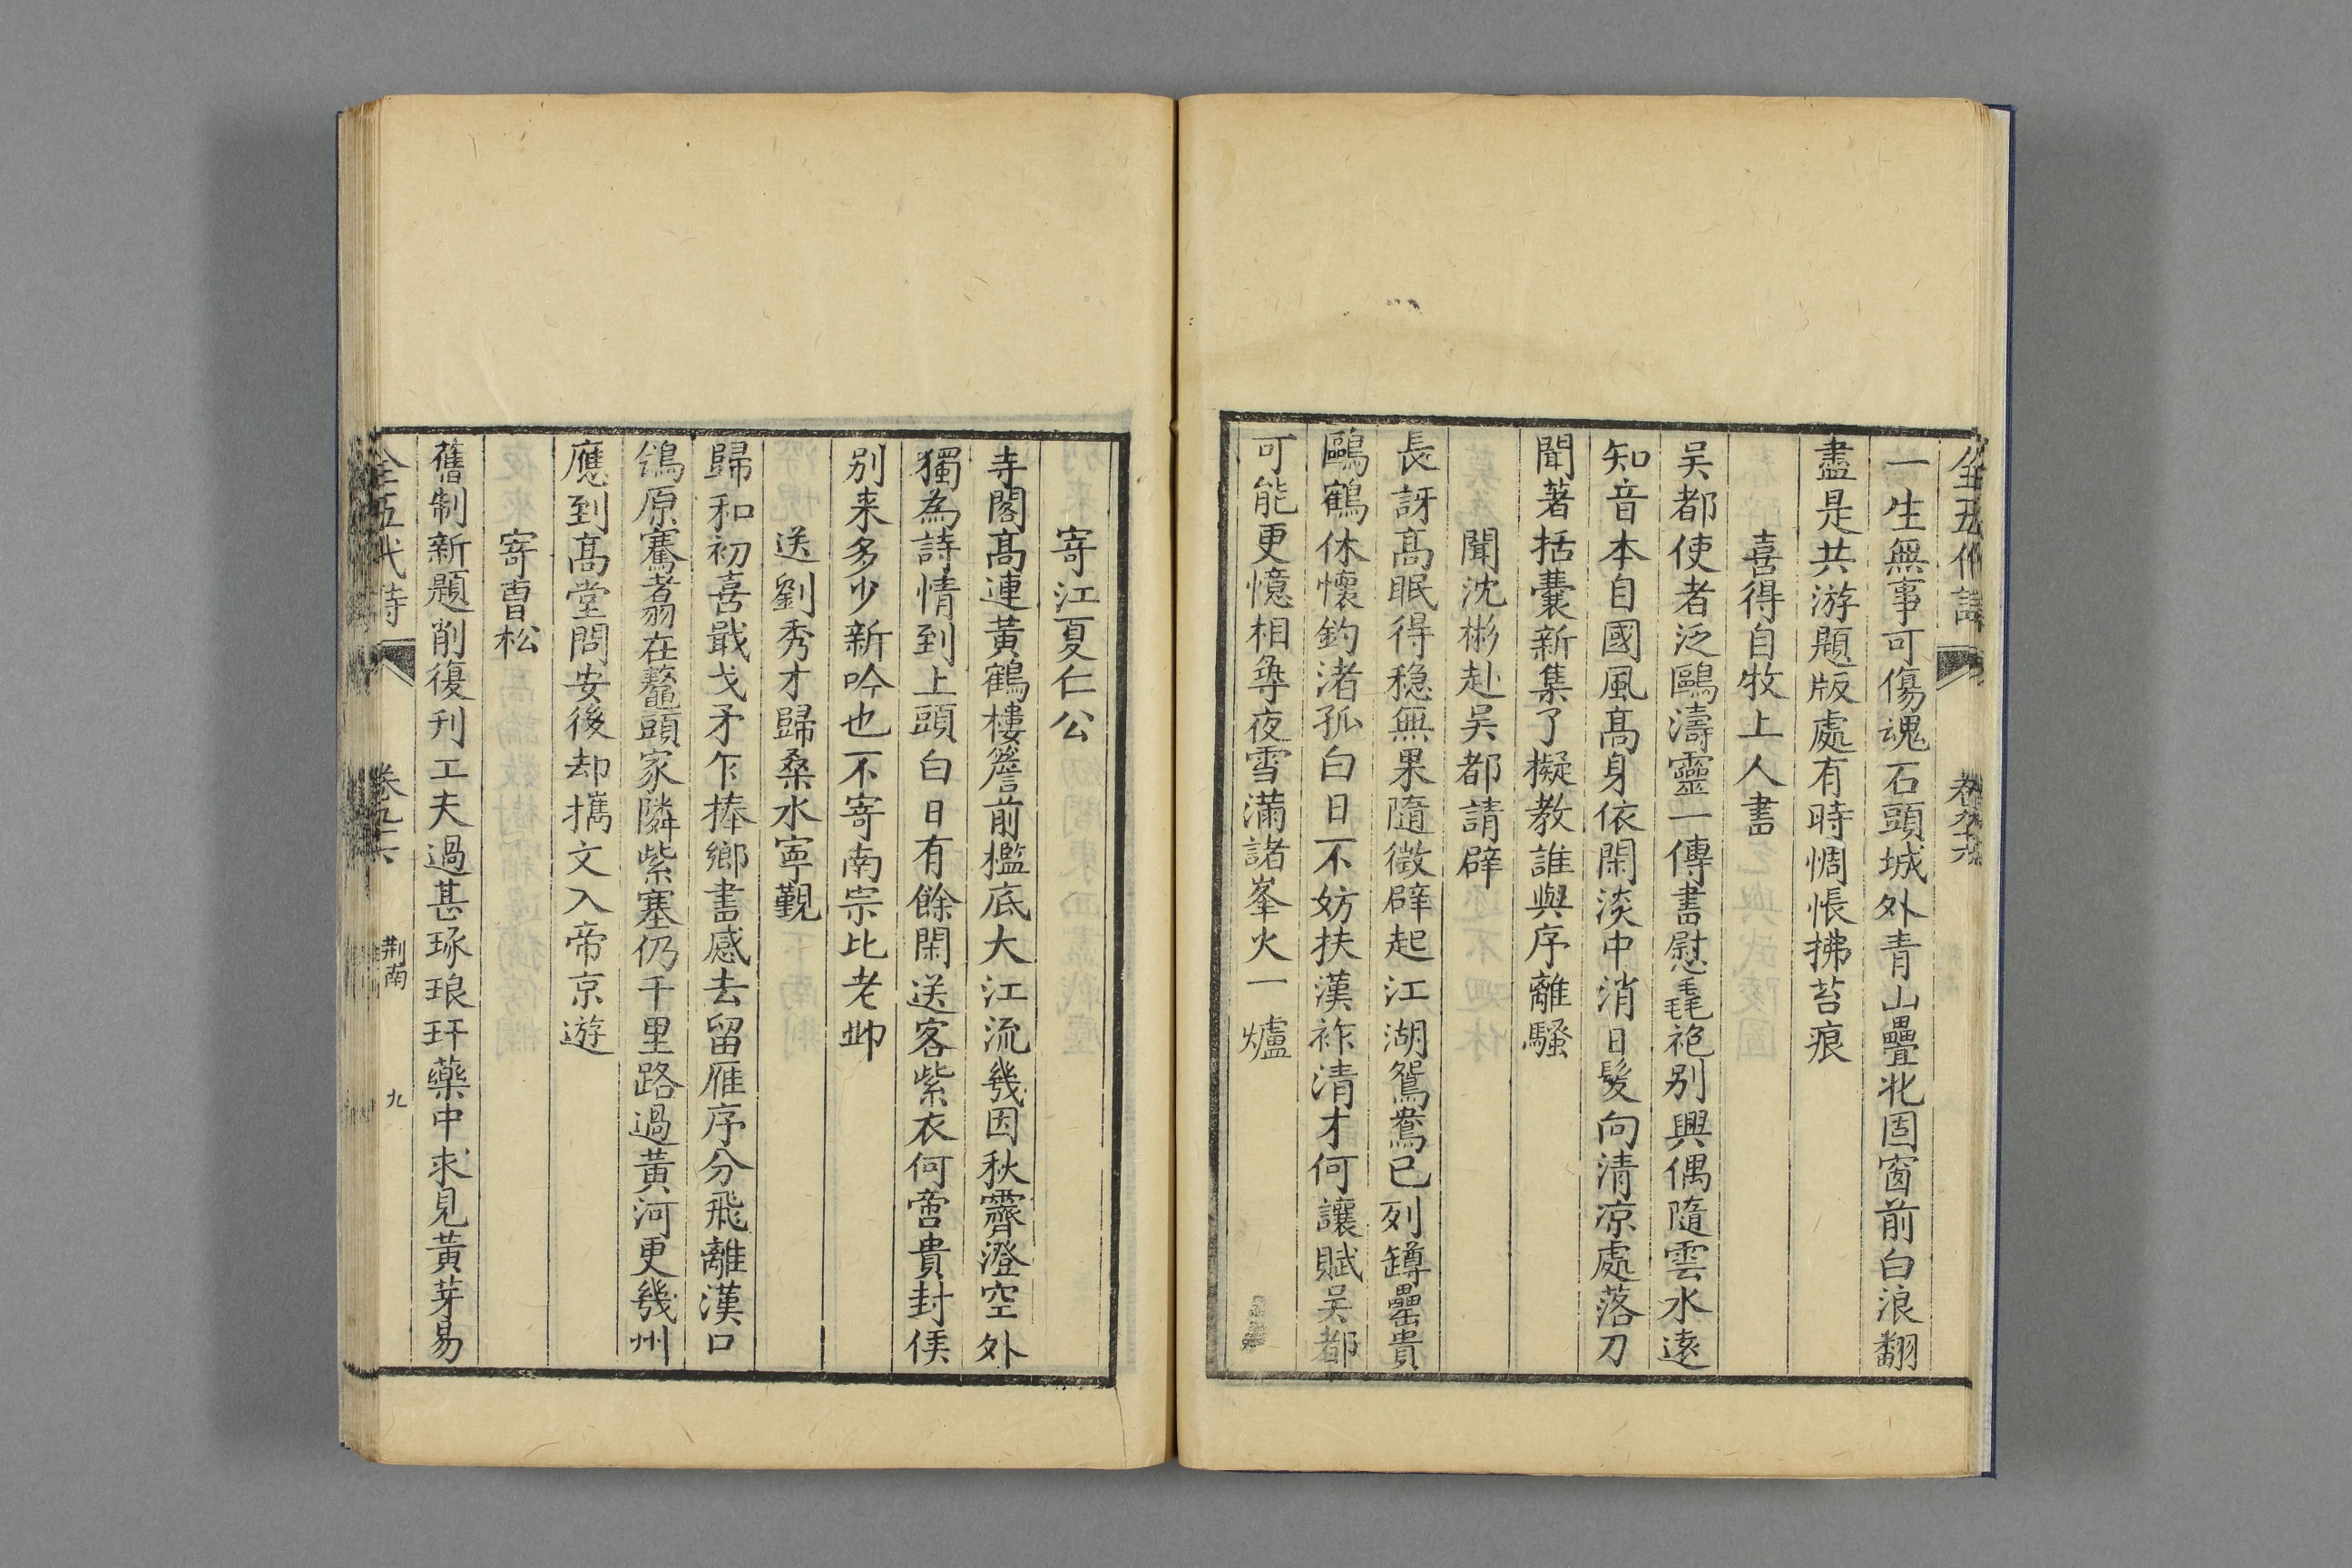 全五代詩 卷
一生無事可傷魂石頭城外青山疊北固窗前白浪翻
盡是共游題版處有時惆悵拂苔痕
喜得自牧上人書
吴都使者泛鷗濤靈一傳書慰毳袍别興偶隨雲水遠
知音本自國風髙身依閑淡中消日髮向清凉處落刀
聞著括囊新集了擬教誰與序離騷
聞沈彬赴吴都請辟
長訝髙眠得穏無果隨徵辟起江湖鴛鴦已列罇罍貴
鷗鶴休懷釣渚孤白日不妨扶漢祚清才何讓賦吴都
可能更憶相尋夜雪滿諸峯火一爐
寄江夏仁公
寺閣髙連黃鶴樓簷前檻底大江流幾因秋霽澄空外
獨為詩情到上頭白日有餘閑送客紫衣何啻貴封侯
别来多少新吟也不寄南宗比老師
送劉秀才歸桑水寧覲
歸和初喜戢戈矛乍捧鄉書感去留雁序分飛離漢口
鴒原騫翥在鼇頭家隣紫塞仍千里路過黃河更幾州
應到髙堂問安後却攜文入帝京遊
寄曹松
舊制新題削復刊工夫過甚琢琅玕藥中求見黃芽易
全五代詩 卷五六 荆南 九